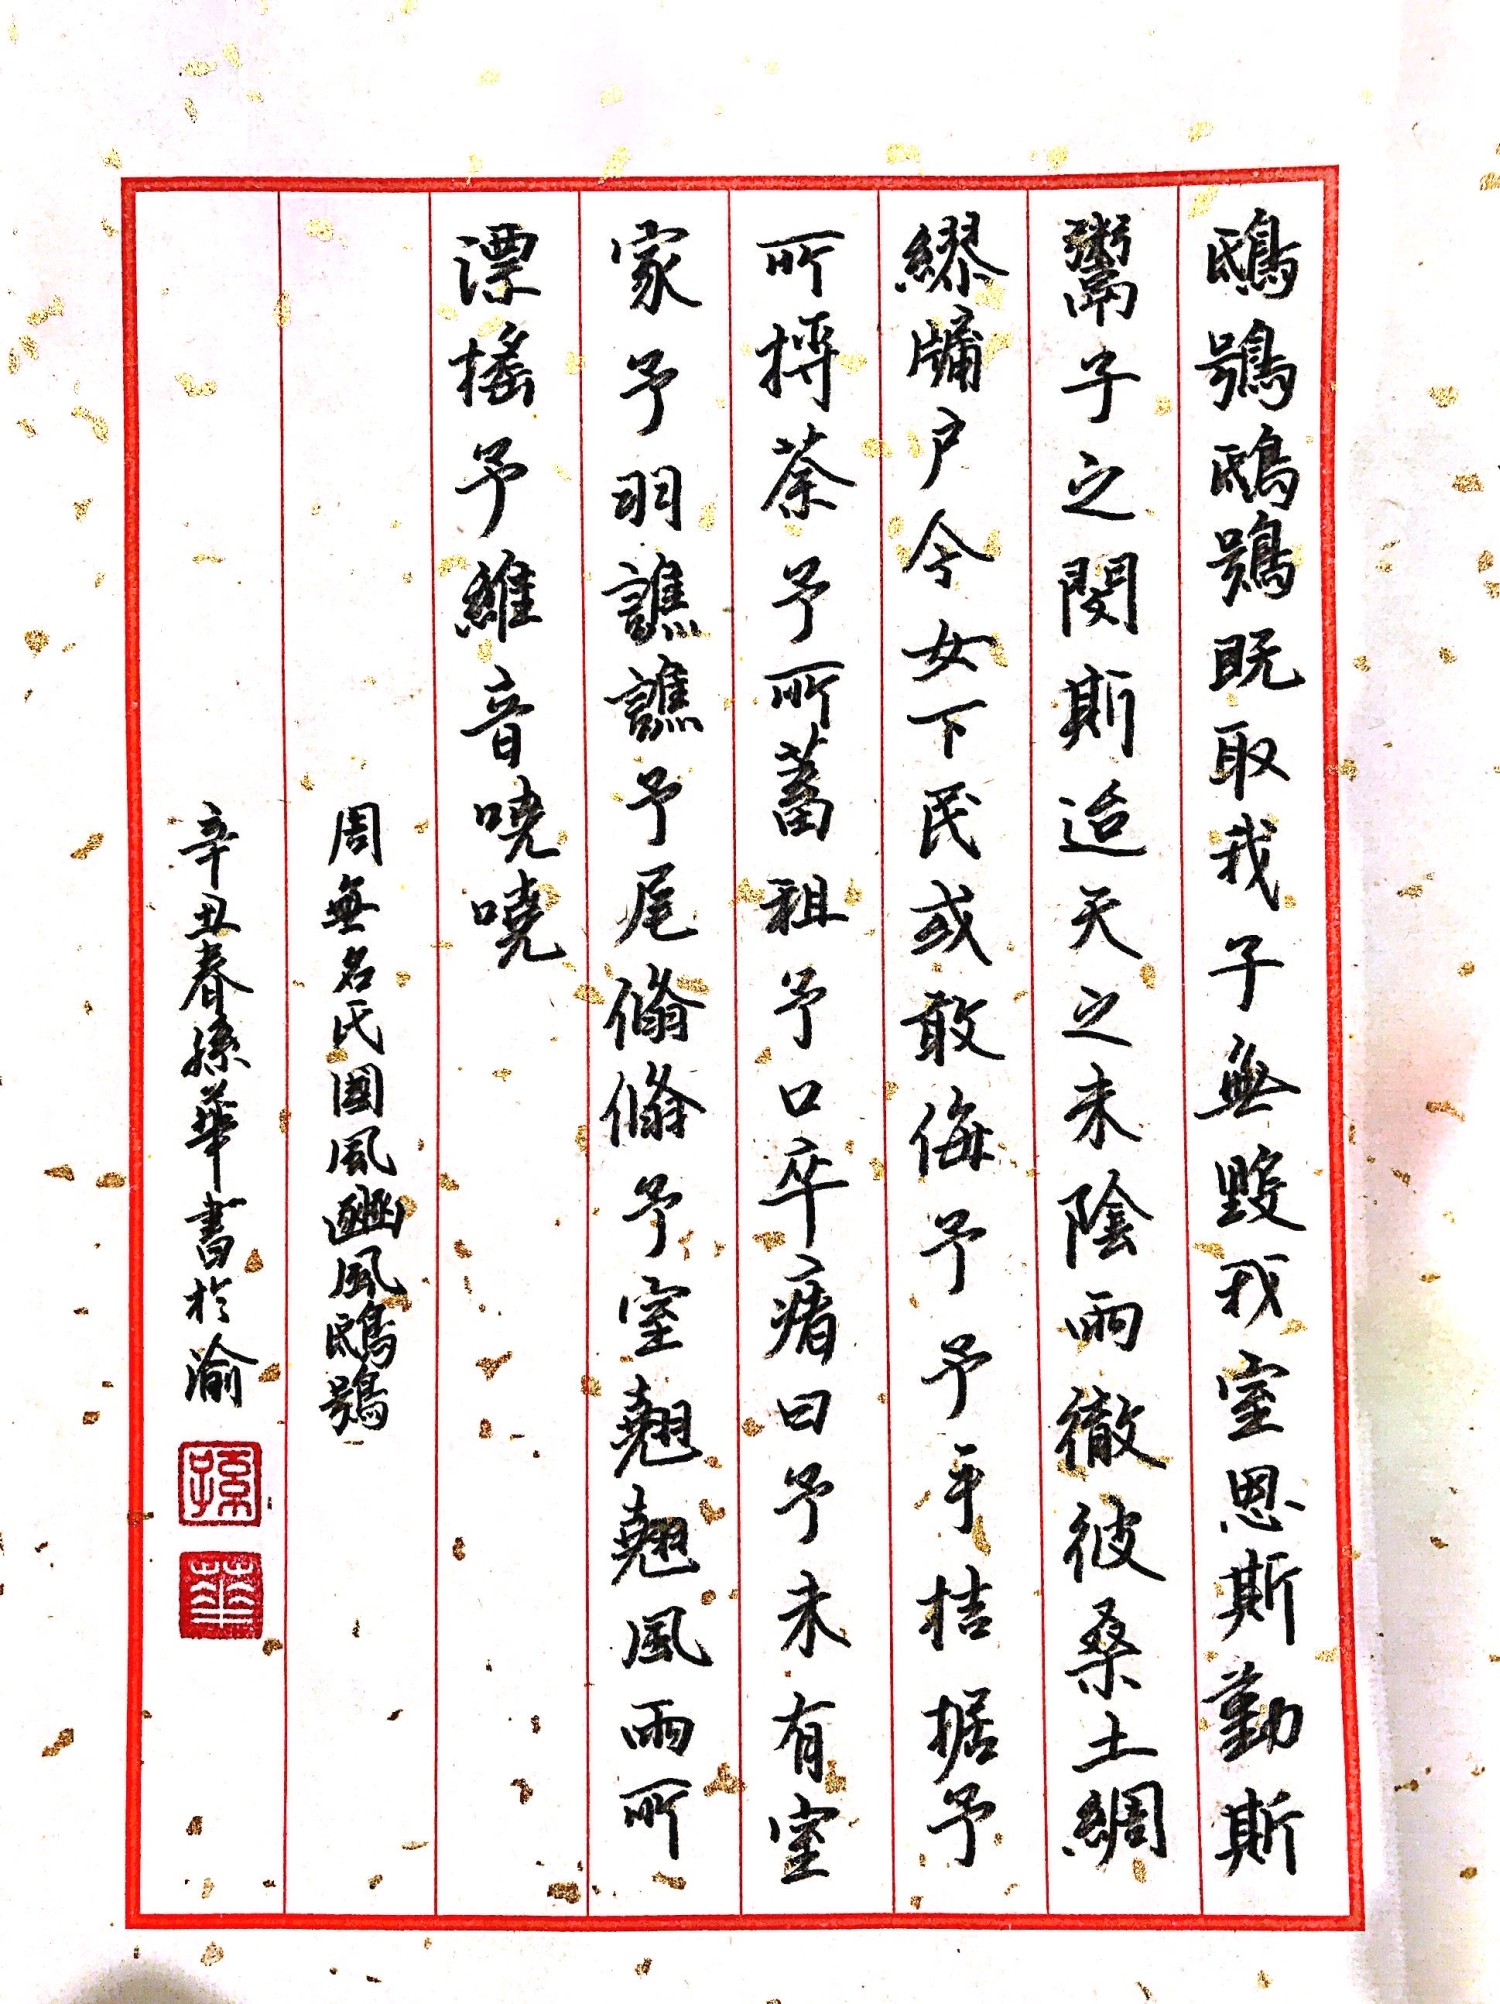 鴟鴞鴟鴞既取我子無毀我室恩斯勤斯
鬻子之閔斯迨天之未陰雨徹彼桑土綢
繆牖户今女下民或敢侮予予手拮据予
所捋荼予所蓄租予口卒瘏曰予未有室
家予羽譙譙予尾翛翛予室翹翹風雨所
漂搖予維音嘵嘵
周無名氏國風豳風鴟鴞
辛丑春孫華書於渝
孫
華